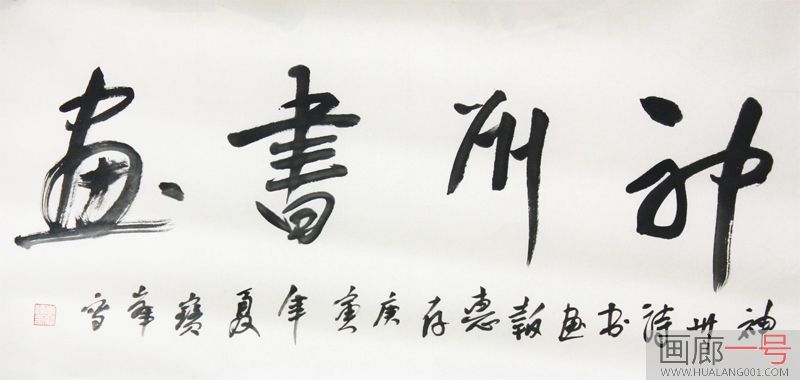 神州書畫
神州诗书画報惠存庚寅年夏寶峯書
画廊一号
WWW.HUALANG001.COM